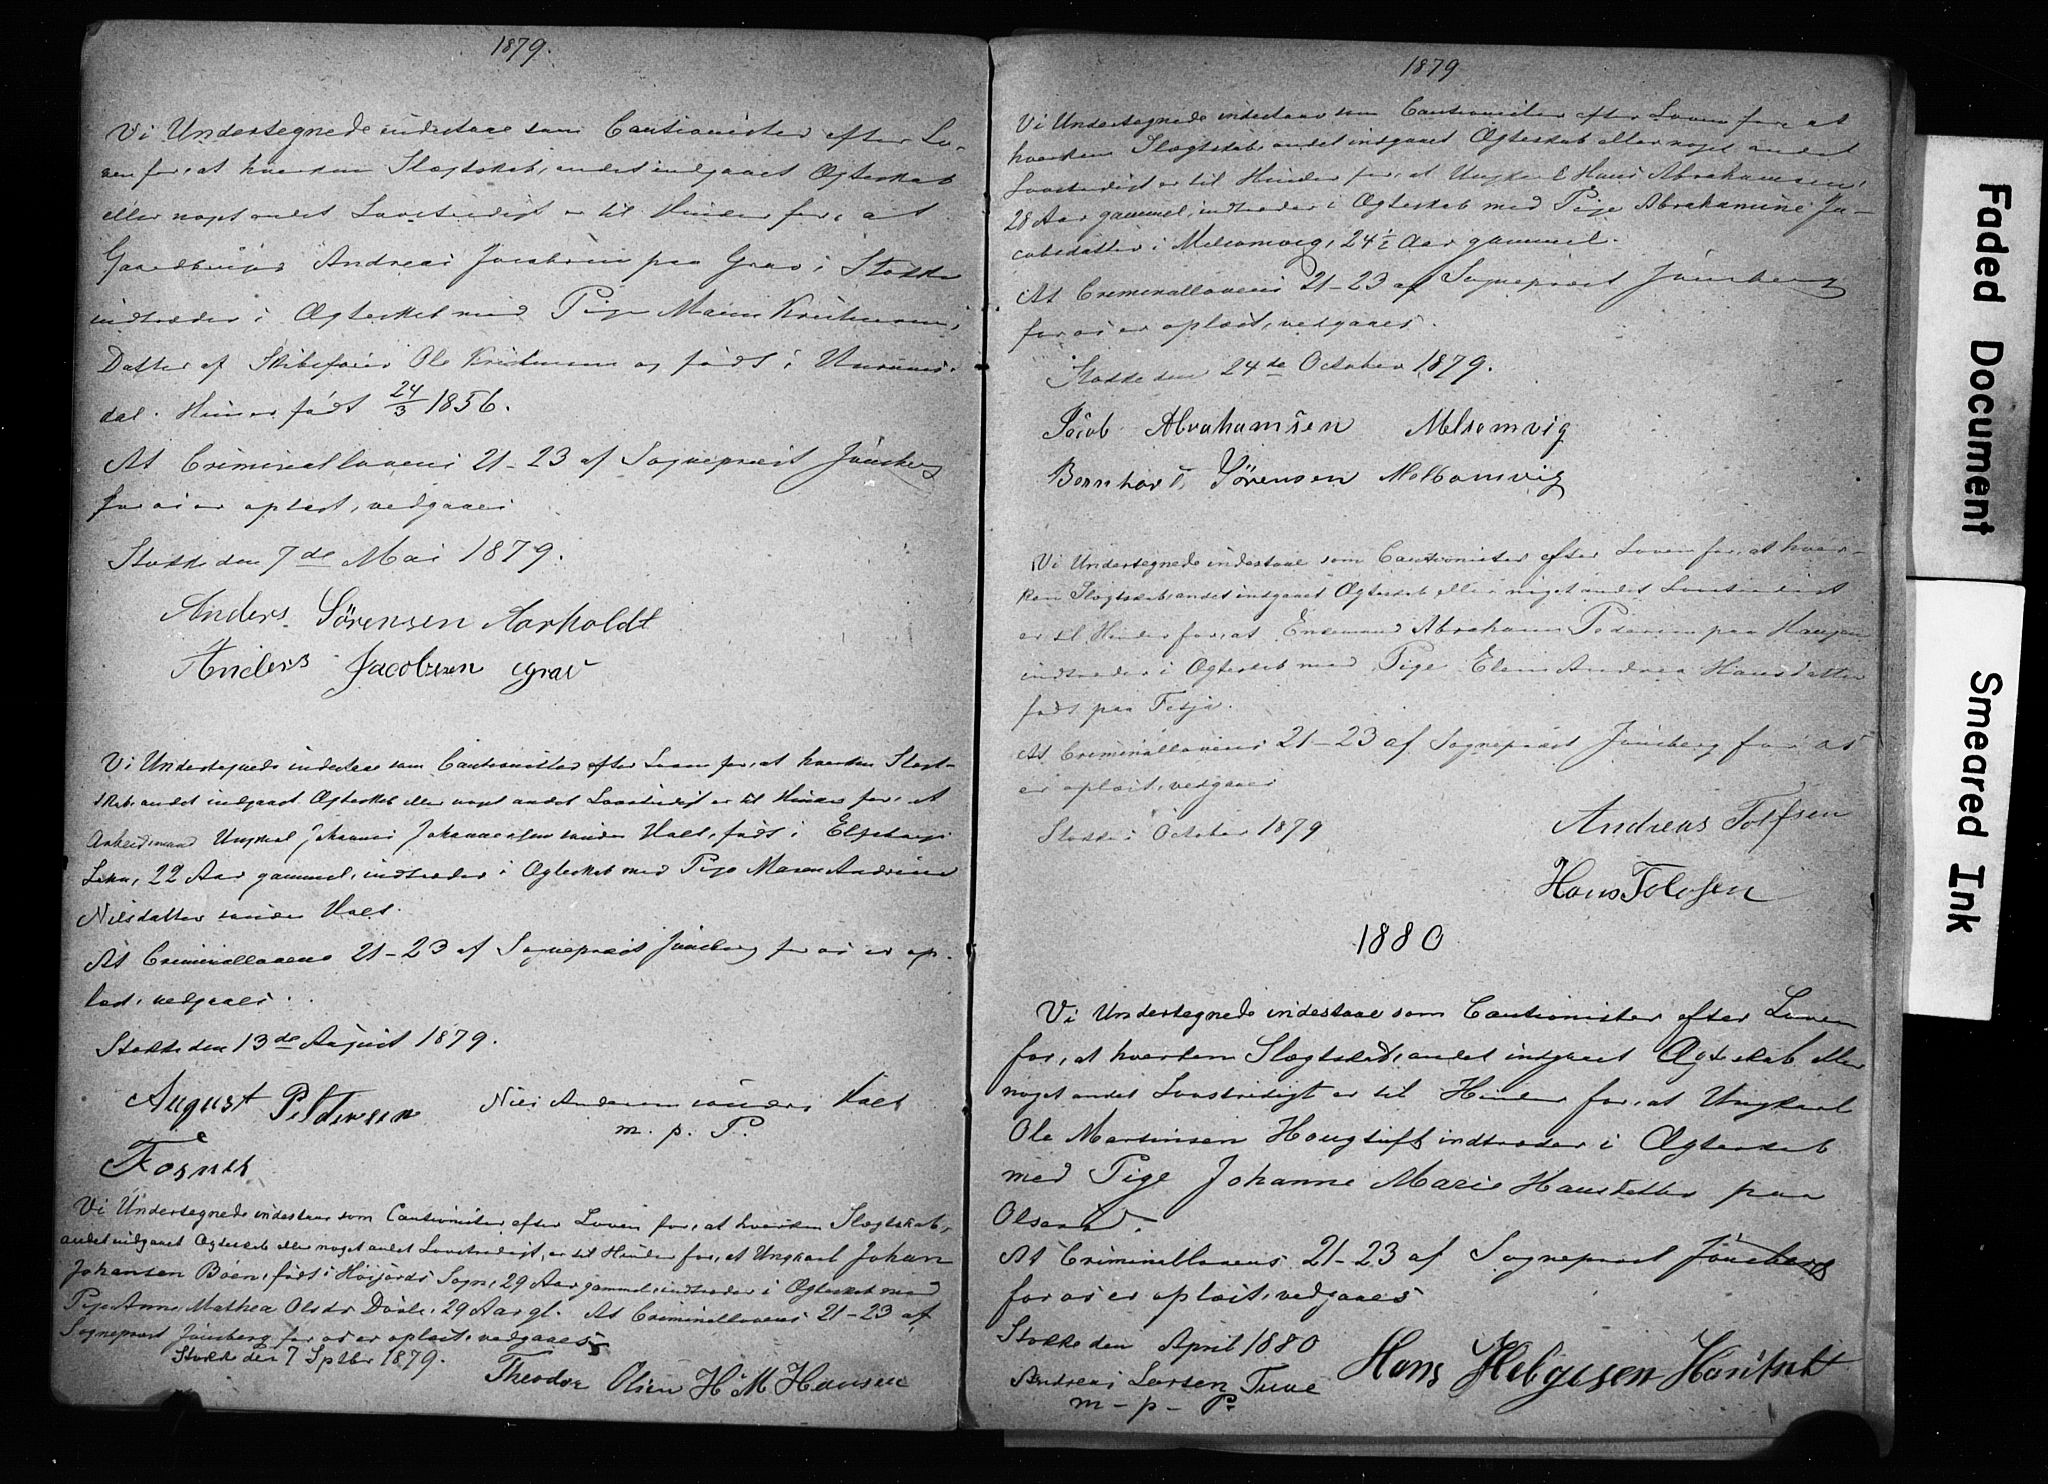 1879.
Vi Undertegnede indestaae som Cautionister efter Lo-
ven for, at hverken Slægtskab, andet indgaaet Ægteskab
eller noget andet Lovstridigt er til Hinder for, at
Gaardbruger Andreas Jacobsen paa Grav i Stokke
indtræder i Ægteskab med Pige Maren Kristensen,
Datter af Skibsfører Ole Kristensen og født i
dal. Hun er født 24/3 1856.
At Criminallovens 21-23 af Sognepræst Jönsberg
for os er oplæst, vedgaaes
Stokke den 7de Mai 1879.
Anders Sørensen Aarholdt
Anders Jacobsen Grav
Vi Undertegnede indestaae som Cautionister efter Loven for, at hverken Slægt-
skab, andet indgaaet Ægteskab eller noget andet Lovstridigt er til Hinder for, at
Arbeidsmand Ungkarl Johannes Johannessen under Hals, født i
22 Aar gammel, indtræder i Ægteskab med Pige Maren Andrine
Nilsdatter under Hals.
At Criminallovens 21-23 af Sognepræst Jönsberg for os er op-
læst, vedgaaes.
Stokke den 13de August 1879.
August Pedersen Nils Andersen under Hals
m. p. P.
Fosnes
Vi Undertegnede indestaae som Cautionister efter Loven for, at hverken Slægtskab,
andet indgaaet Ægteskab eller noget andet Lovstridigt, er til Hinder for, at Ungkarl Johan
Johansen Böen, født i Höijords Sogn, 29 Aar gammel, indtræder i Ægteskab med
Pige Anne Mathea Olsdr Dövle, 29 Aar gl. At Criminallovens 21-23 af
Sognepræst Jönsberg for os er oplæst, vedgaaes
Stokke den 7 Sptbr 1879.
Theodor Olsen H M Hansen
1879
Vi Undertegnede indestaar som Cautionister efter Loven for, at
hverken Slægtskab, andet indgaaet Ægteskab eller noget andet
Lovstridigt er til Hinder for, at Ungkarl Hans Abrahamsen,
28 Aar gammel, indtræder i Ægteskab med Pige Abrahamine Ja-
cobsdatter i Melsomvig, 24 1/2 Aar gammel.
At Criminallovens 21-23 af Sognepræst Jönsberg
for os er oplæst, vedgaaes.
Stokke den 24de October 1879.
Jacob Abrahamsen Melsomvig
Bernhard Sørensen Melsomvig
Vi Undertegnede indestaae som Cautionister efter Loven for, at hver-
ken Slægtskab, andet indgaaet Ægteskab eller noget andet Lovstridigt
er til Hinder for, at Enkemand Abraham Pedersen paa Haugen
indtræder i Ægteskab med Pige Elen Andrea Hansdatter
født paa Fesja.
At Criminallovens 21-23 af Sognepræst Jönsberg for os
er oplæst, vedgaaes
Stokke i October 1879
Andreas Tolfsen
Hans Tolfsen
1880
Vi Undertegnede indestaae som Cautionister efter Loven
for, at hverken Slægtskab, andet indgaaet Ægteskab eller
noget andet Lovstridigt er til Hinder for, at Ungkarl
Ole Martinsen Hougtuft indtræder i Ægteskab
med Pige Johanne Marie Hansdatter paa
Olsrød.
At Criminallovens 21-23 af Sognepræst Jönsberg
for os er oplæst, vedgaaes
Stokke den April 1880
Andreas Larsen Tuve Hans Helgesen
m - p - P.
Faded Document
Smeared Ink